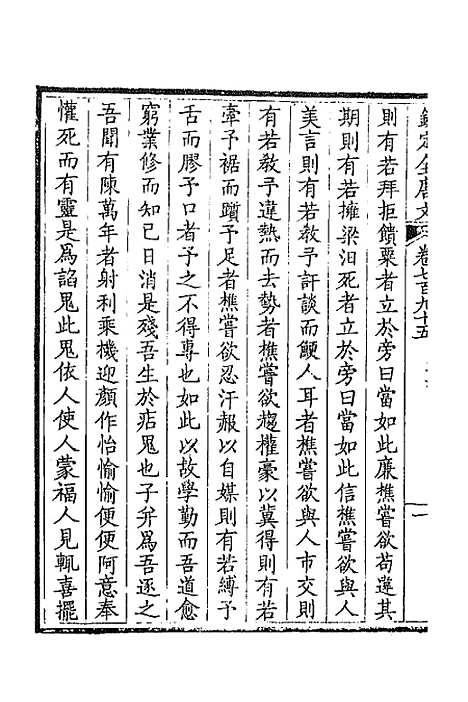 欽定全唐文 卷七百九十五
則有若拜拒饋粟者立於旁曰當如此廉樵嘗欲苟違其
期則有若擁梁汨死者立於旁曰當如此信樵嘗欲與人
美言則有若敎予訐談而鯁人耳者樵嘗欲與人市交則
有若敎予違熱而去勢者樵嘗欲趨權豪以冀得則有若
牽予裾而躓予足者樵嘗欲忍汗赧以自媒則有若縛予
舌而膠予口者予之不得專也如此以故學勤而吾道愈
窮業修而知已日消是殘吾生於㾀鬼也子幷爲吾逐之
吾聞有陳萬年者射利乘機迎顏作怡愉愉便便阿意奉
懽死而有靈是爲諂鬼此鬼依人使人蒙福人見輒喜擺